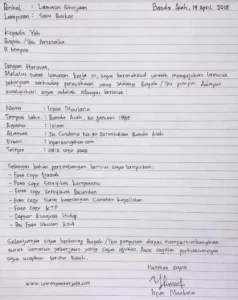 Perihal : Lamaran Pekerjaan Banda Aceh, 19 April 2018
Lampiran : Satu Berkas
Kepada Yth
Bapak / Ibu Personalia
di tempat
Dengan Hormat,
Melalui surat lamaran kerja ini, saya bermaksud untuk mengajukan lamaran
pekerjaan terhadap perusahaan yang sedang Bapak / Ibu pimpin. Adapun
adalah sebagai berikut :
Nama : Irpan Maulana
Tempat lahir : Banda Aceh, 20 Januari 1994
Agama : Islam
Alamat : Banda Aceh
Email :
Telepon : 0812
Sebagai bahan pertimbangan berikut saya lampirkan :
- Foto Copy Ijazah
- Foto Copy Sertifikat Komputer
- Foto Copy Sertifikat
- Foto Copy Surat Keterangan Catatan Kepolisian
- Foto Copy KTP
- Daftar Riwayat Hidup
- Pas Foto Ukuran 3x4
Selanjutnya saya berharap Bapak / Ibu pimpinan dapat mempertimbangkan
surat lamaran pekerjaan yang saya ajukan. Atas segala perhatiannya
saya ucapkan terima kasih.
Hormat saya
Irpan Maulana